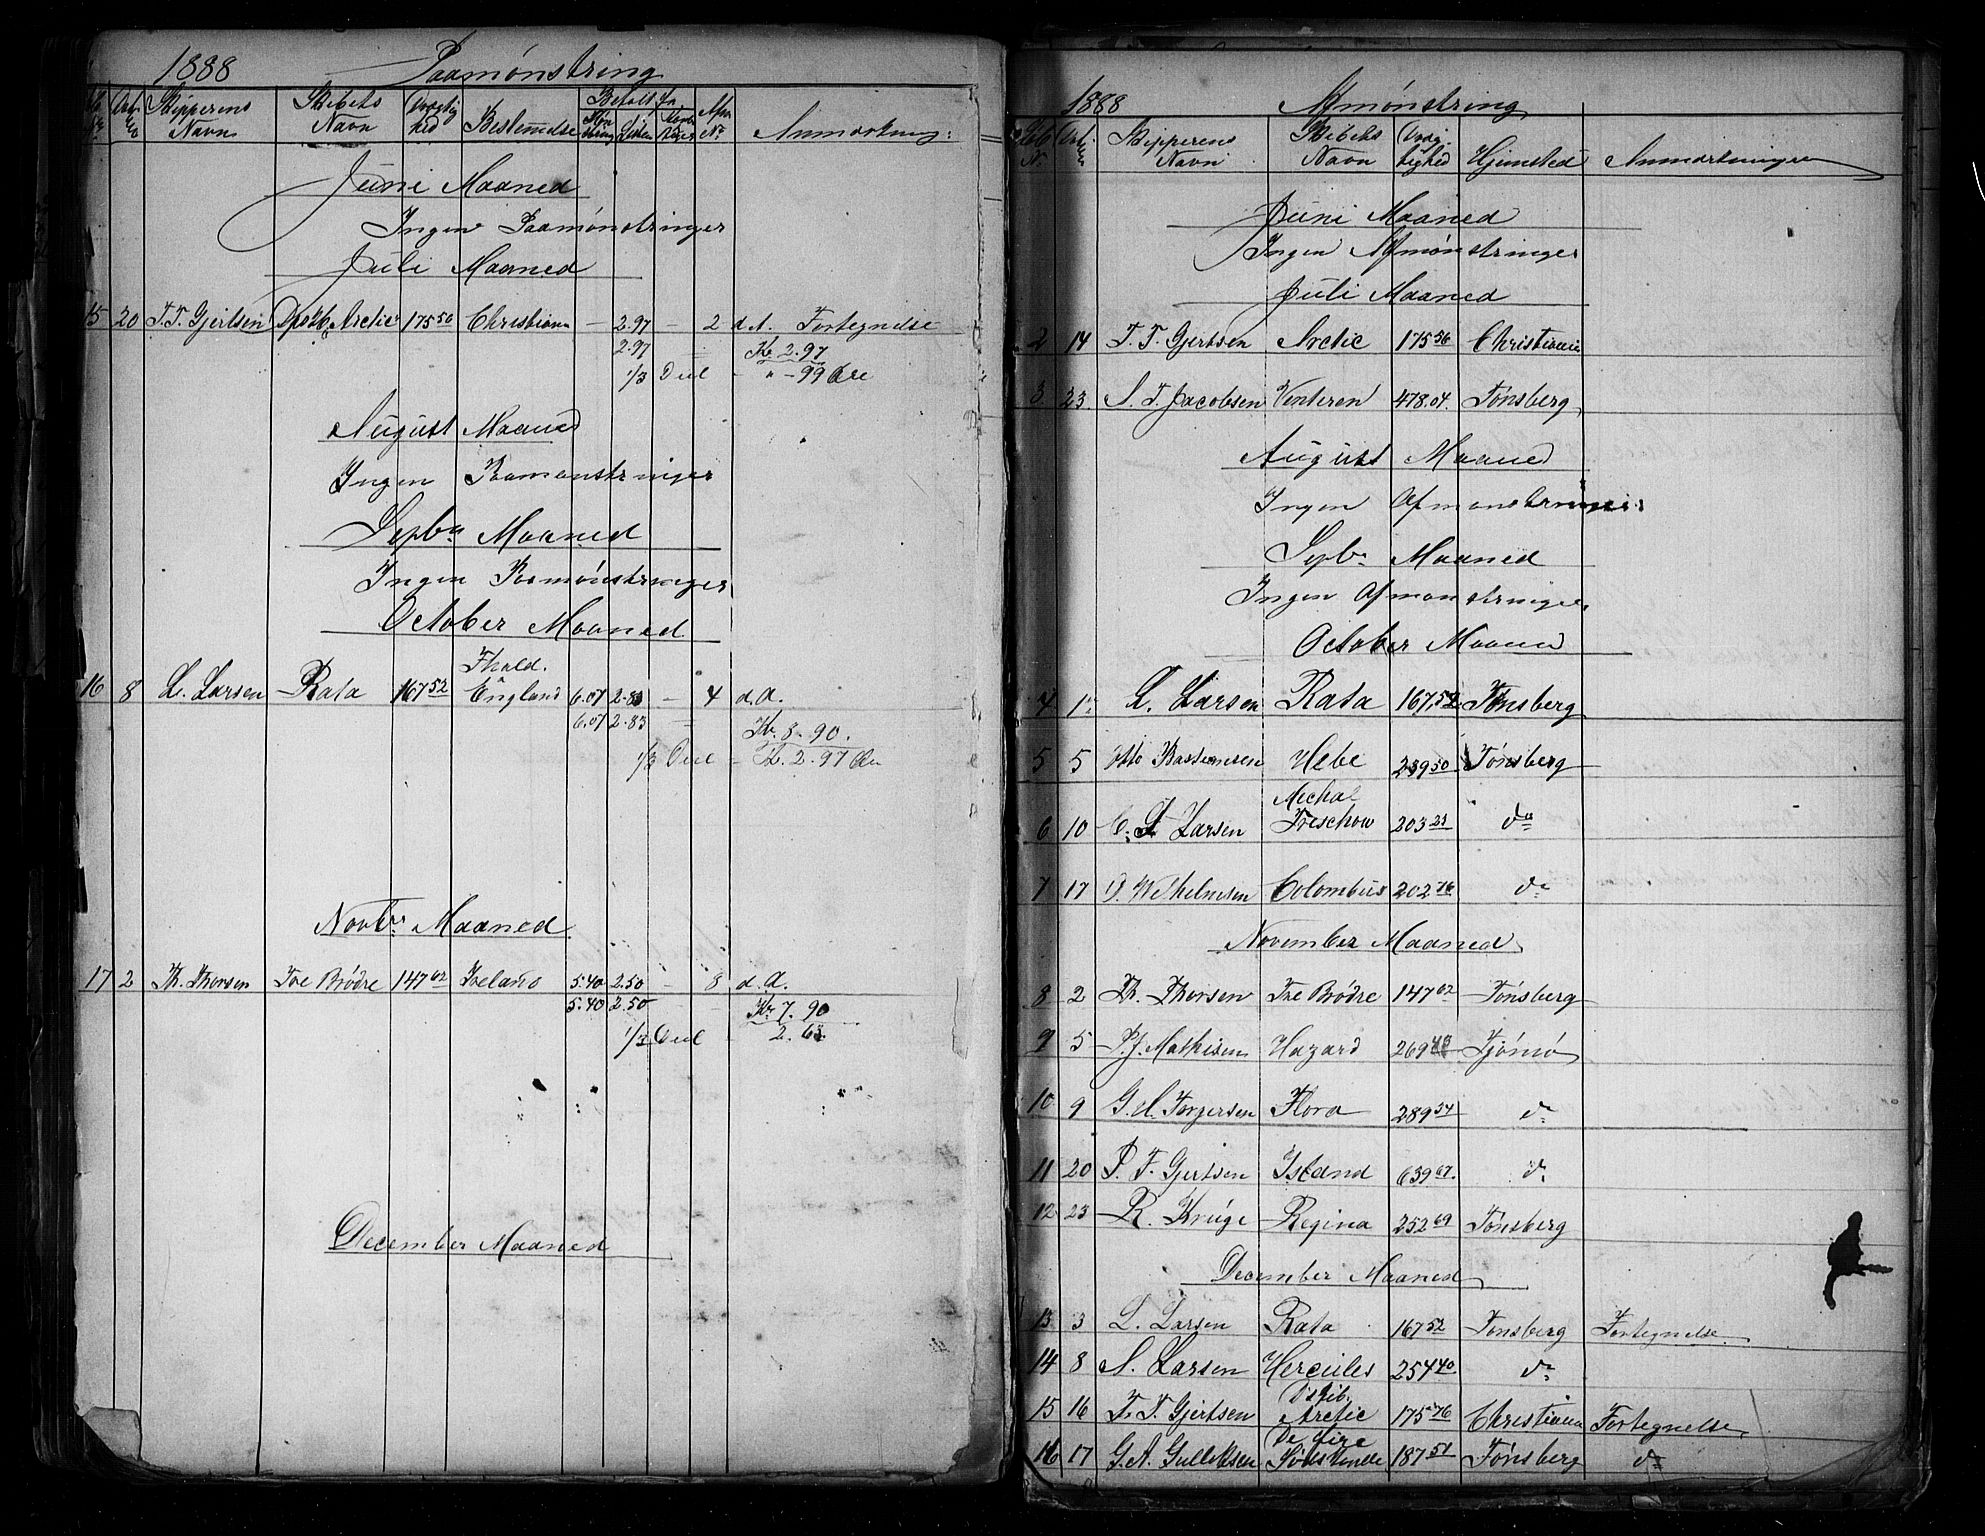 1888 Paamønstring
Skipperens Navn Skibets Navn Drægtighed Bestemmelse Betalt for Anmærkning:
Juni Maaned
Ingen Paamønstringer
Juli Maaned
15 20 T. T. Gjertsen Arctic 175 56 Christiania - 2.97 - 2 d.A. Fortegnelse
2.97 Kr 2.97
1/3 Deel - " - 99 Øre
August Maaned
Ingen Paamønstringer
Sepbr Maaned
Ingen Paamønstringer
October Maaned
Fhald.
16 8 L. Larsen Rata 167 52 England 6.07 2.83 - 4 d.A.
6.07 2.83 Kr. 8.90.
1/3 Deel - Kr. 2.97 Øre
Novbr Maaned
17 2 Th. Thorsen Tre Brødre 147 62 Ireland 5.40 2.50 - 8 d.A.
5.40 2.50 - Kr 7.90
1/3 Deel - 2.63
December Maaned
1888 Afmønstring
Skipperens Navn Skibets Navn Drægtighed Hjemsted Anmærkninger
Juni Maaned
Ingen Afmønstringer
Juli Maaned
2 14 T. T. Gjertsen Arctic 175 56 Christiania
3 23 S. T. Jacobsen Venteren 478.04. Tønsberg
August Maaned
Ingen Afmønstringer
Sepbr Maaned
Ingen Afmønstringer
October Maaned
4 1 L. Larsen Rata 167,52 Tønsberg
5 5 Otto Bastiansen Hebe 239 50 Tønsberg
Michal
6 10 C. L. Larsen Treschow 203 23 do
7 17 O. Wilhelmsen Colombus 202 76 do
November Maaned
8 2 Th. Thorsen Tre Brødre 147 62 Tønsberg
9 5 P. J. Mathisen Hazard 269 48 Tjømø
10 9 G. H. Torgersen Flora 289 54 do
11 20 P. F. Gjertsen Island 639 67. do
12 23 R. Krüge Regina 252 69 Tønsberg
December Maaned
13 3 L. Larsen Rata 167 52 Tønsberg Fortegnelse
14 8 S. Larsen Hercules 254 40 do
Dskib.
15 16 T. T. Gjertsen Arctic 175 76 Christiania Fortegnelse
De fire
16 17 G. A. Gulliksen Sødskende 187 51 Tønsberg do